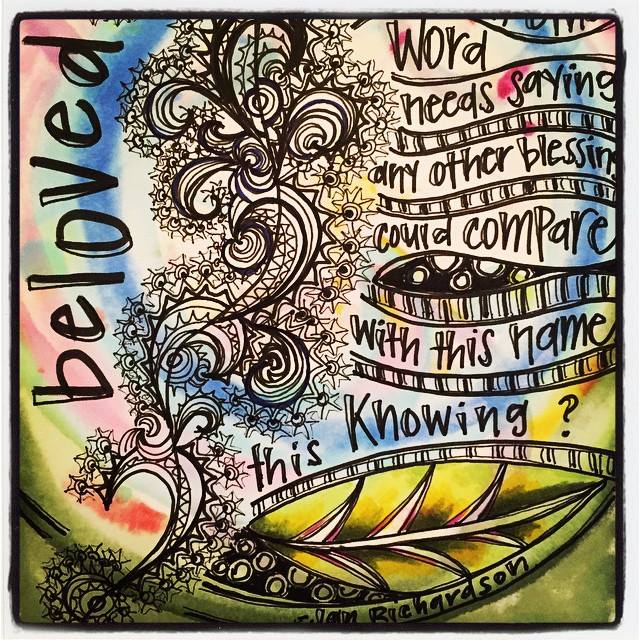 beloved
Word
needs saying
any other blessing
could compare
with this name
this Knowing ?
-Jan Richardson